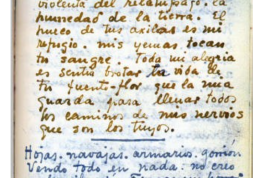 violenta del relámpago, la
humedad de la tierra. El
hueco de tus axilas es mi
refugio. mis yemas tocan
tu sangre. Toda mi alegria
es sentir brotar la vida de
tu fuente-flor que la mia
guarda para llenar todos
los caminos de mis nervios
que son los tuyos.
Hojas. navajas. armario. gorrión
Vendo todo en nada. no creo